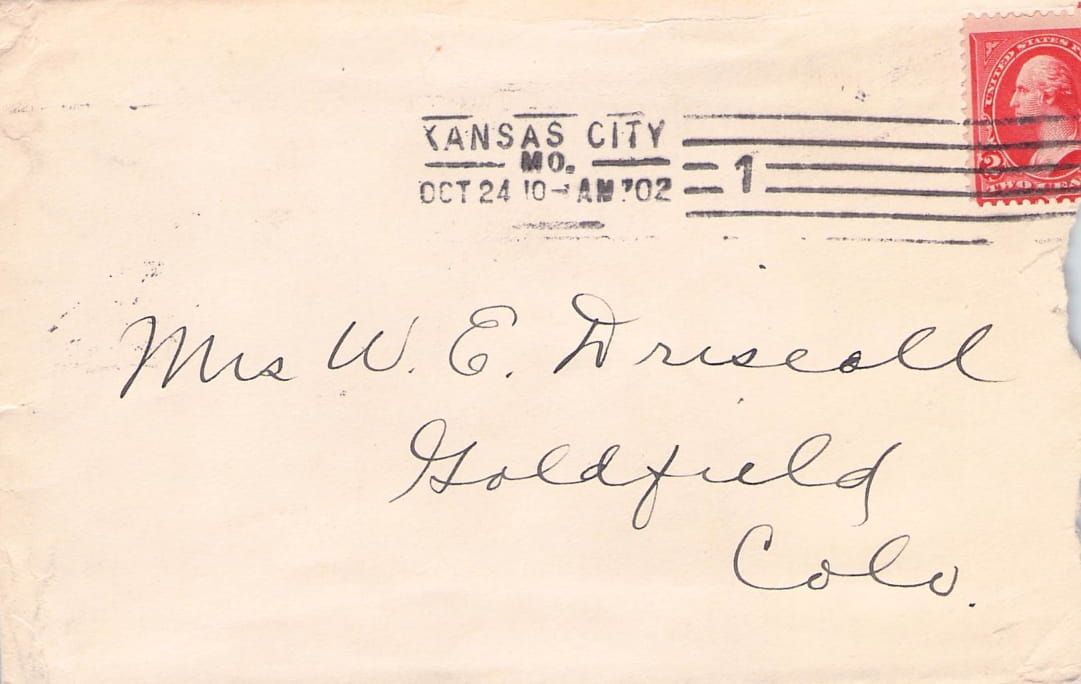 KANSAS CITY
MO.
OCT 24 10-AM '02
1
UNITED STATES P
2
TWO CEN
Mrs W. E. Driscoll
Goldfield
Colo.